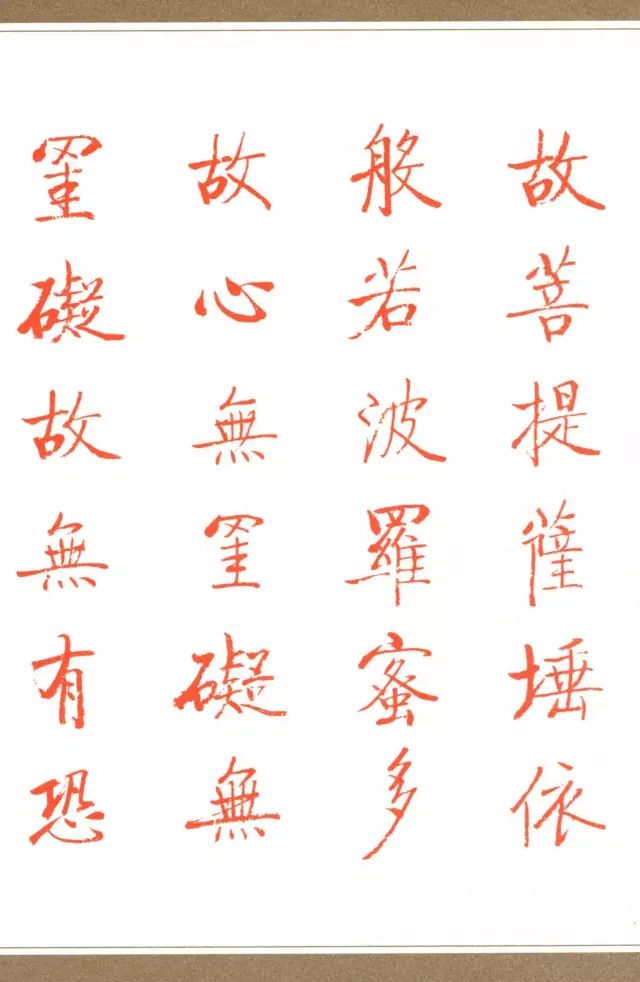 故菩提薩埵依
般若波羅蜜多
故心無罣礙無
罣礙故無有恐